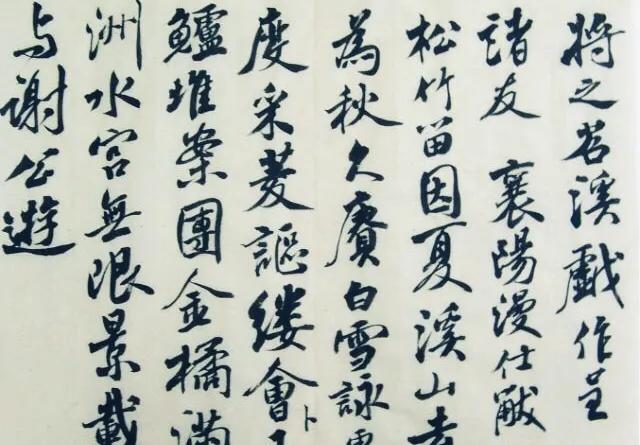 將之苕溪戲作呈
諸友 襄陽漫仕黻
松竹留因夏溪山
為秋久賡白雪詠
度采菱謳縷會卜
鱸堆案團金橘滿
洲水宮無限景載
与謝公遊